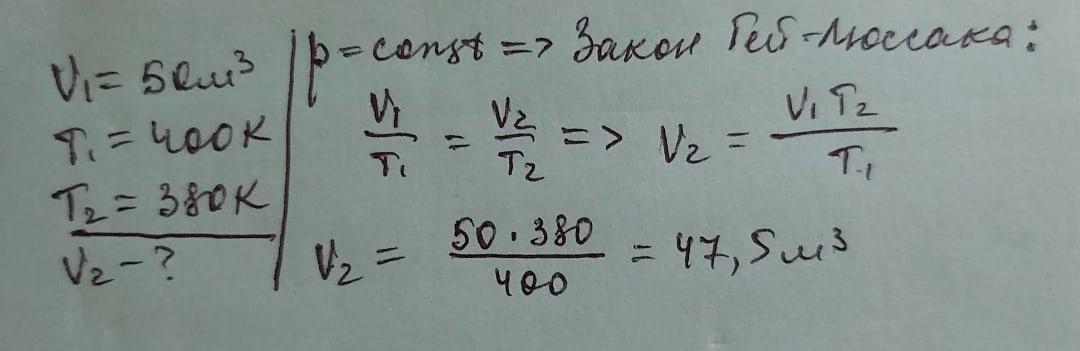 V₁ = 50м³
T₁ = 400К
T₂ = 380К
V₂ – ?
p = const => Закон Гей-Люссака:
V₁/T₁ = V₂/T₂ => V₂ = V₁T₂/T₁
V₂ = 50·380/400 = 47,5м³